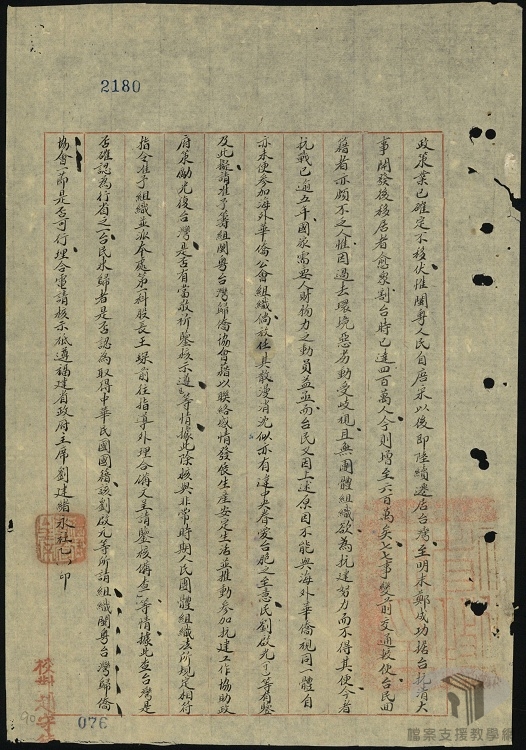 2180
政策業已確定不移伏惟閩粵人民自唐宋以後即陸續遷居台灣至明末鄭成功據台抗清大
事開發後移居者愈眾割台時已達四百萬人今則增至六百萬矣七七事變前交通較便台民回
籍者亦頗不乏人惟因過去環境惡劣動受歧視且無團體組織欲為抗建努力而不得其便今者
抗戰已逾五年國家需要人財物力之動員益亟而台民又因上述原因不能與海外華僑視同一體自
亦未便參加海外華僑公會組織倘放任其散漫消沉似亦有違中央眷愛台胞之至意民劉啟光等有鑒
及此擬請准予籌組閩粵台灣歸僑協會藉以聯絡感情發展生產安定生活並推動參加抗建工作協助政
府策勵光復台灣是否有當敬祈鑒核示遵等情據此除核與非常時期人民團體組織法所規定相符
指令准予組織並派本處第科股長王琛前往指導外理合備文呈請鑒核備查等情據此查台灣是
否確認為行省之一台民來歸者是否認為取得中華民國國籍該劉啟光等所請組織閩粵台灣歸僑
協會一節是否可行理合電請核示祗遵福建省政府主席劉建緒永社乙印
校對
90
076
檔案支援教學網